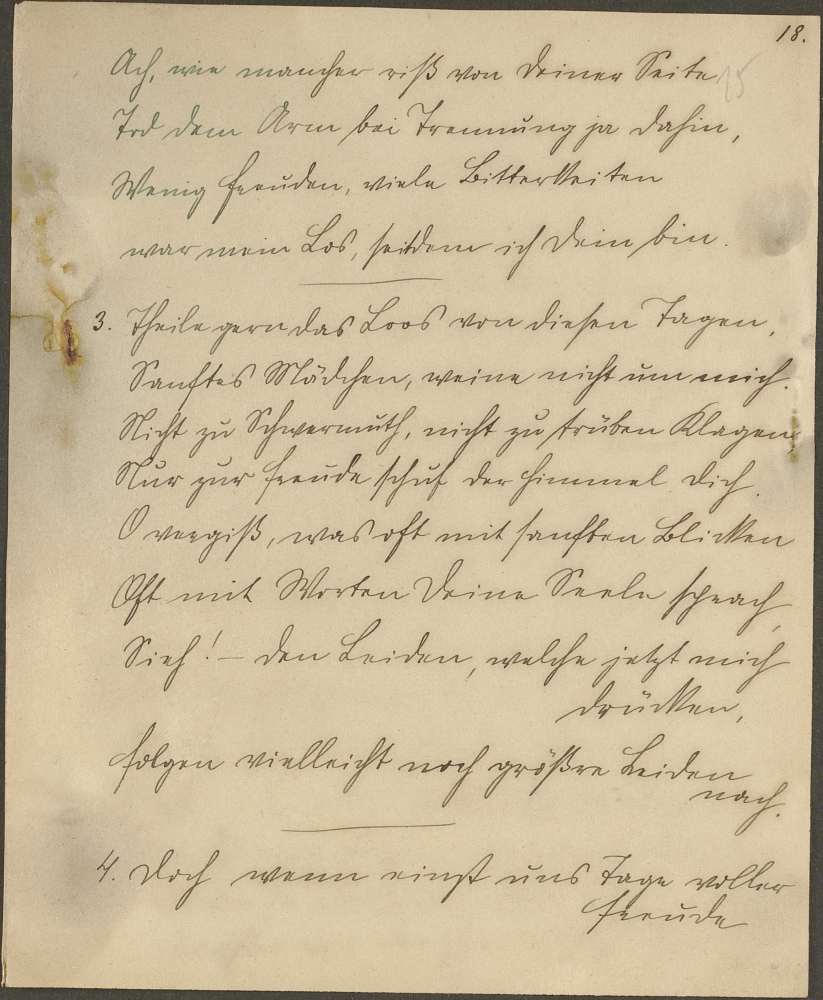 18.
15
Ach, wie mancher riß von Deiner Seite
Tod dem Arm bei Trennung ja dahin,
Wenig Freuden, viele Bitterkeiten
war mein Los, seitdem ich Dein bin.
3. Theile gern das Loos von diesen Tagen,
Sanftes Mädchen, weine nicht um mich.
Nicht zu Schwermuth, nicht zu trüben Klagen,
Nur zur Freude schuf der Himmel Dich.
O vergiß, was oft mit sanften Blicken
Oft mit Worten Deine Seele sprach,
Sieh! – den Leiden, welche jetzt mich
drücken,
folgen vielleicht noch größre Leiden
nach.
4. Doch wenn einst uns Tage voller
Freude